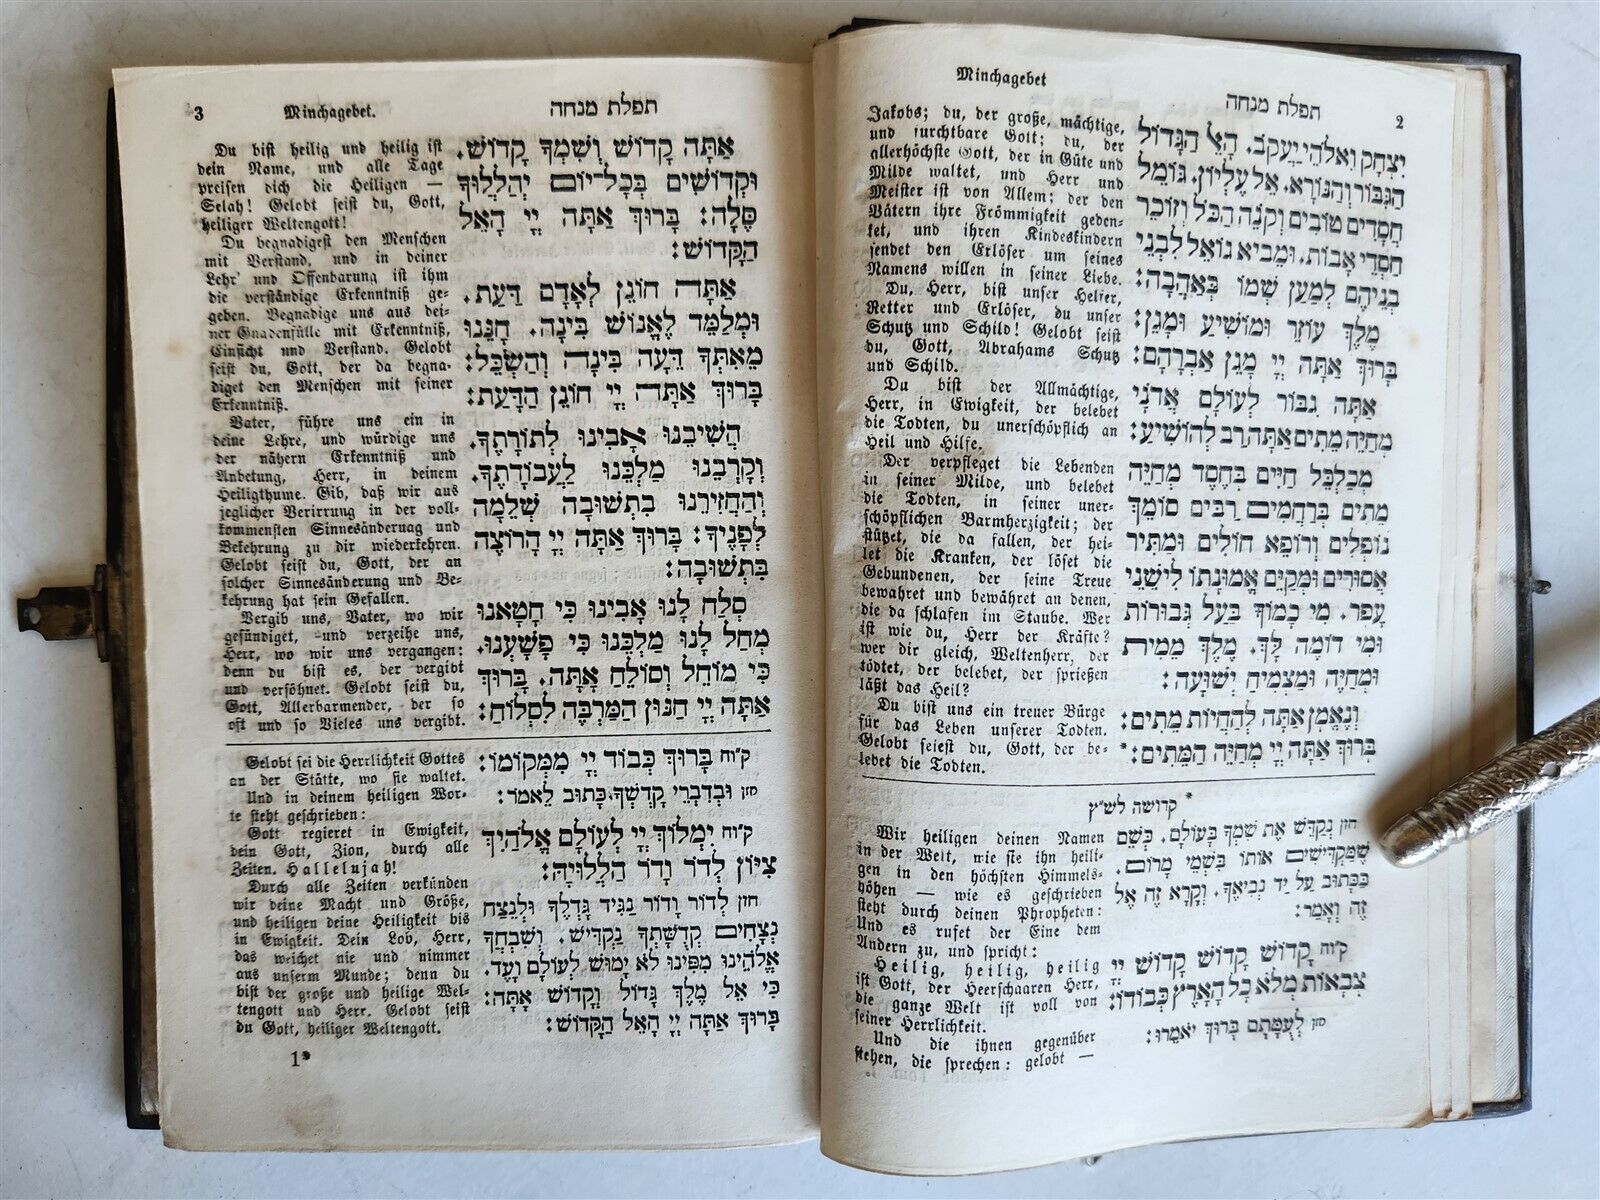 Minchagebet
תפלת מנחה
2
יִצְחָק וֵאלֹהֵי יַעֲקֹב. הָאֵל הַגָּדוֹל
הַגִּבּוֹר וְהַנּוֹרָא. אֵל עֶלְיוֹן. גּוֹמֵל
חֲסָדִים טוֹבִים וְקֹנֵה הַכֹּל וְזוֹכֵר
חַסְדֵי אָבוֹת. וּמֵבִיא גוֹאֵל לִבְנֵי
בְנֵיהֶם לְמַעַן שְׁמוֹ בְּאַהֲבָה:
מֶלֶךְ עוֹזֵר וּמוֹשִׁיעַ וּמָגֵן:
בָּרוּךְ אַתָּה יְיָ מָגֵן אַבְרָהָם:
אַתָּה גִבּוֹר לְעוֹלָם אֲדֹנָי
מְחַיֵּה מֵתִים אַתָּה רַב לְהוֹשִׁיעַ:
מְכַלְכֵּל חַיִּים בְּחֶסֶד מְחַיֵּה
מֵתִים בְּרַחֲמִים רַבִּים סוֹמֵךְ
נוֹפְלִים וְרוֹפֵא חוֹלִים וּמַתִּיר
אֲסוּרִים וּמְקַיֵּם אֱמוּנָתוֹ לִישֵׁנֵי
עָפָר. מִי כָמוֹךָ בַּעַל גְּבוּרוֹת
וּמִי דוֹמֶה לָּךְ. מֶלֶךְ מֵמִית
וּמְחַיֶּה וּמַצְמִיחַ יְשׁוּעָה:
וְנֶאֱמָן אַתָּה לְהַחֲיוֹת מֵתִים:
בָּרוּךְ אַתָּה יְיָ מְחַיֵּה הַמֵּתִים: *
Jakobs; du, der große, mächtige,
und furchtbare Gott; du, der
allerhöchste Gott, der in Güte und
Milde waltet, und Herr und
Meister ist von Allem; der den
Vätern ihre Frömmigkeit geden-
ket, und ihren Kindeskindern
sendet den Erlöser um seines
Namens willen in seiner Liebe.
Du, Herr, bist unser Helfer,
Retter und Erlöser, du unser
Schutz und Schild! Gelobt seist
du, Gott, Abrahams Schutz
und Schild.
Du bist der Allmächtige,
Herr, in Ewigkeit, der belebet
die Todten, du unerschöpflich an
Heil und Hilfe.
Der verpfleget die Lebenden
in seiner Milde, und belebet
die Todten, in seiner uner-
schöpflichen Barmherzigkeit; der
stützet, die da fallen, der hei-
let die Kranken, der löset die
Gebundenen, der seine Treue
bewahret und bewähret an denen,
die da schlafen im Staube. Wer
ist wie du, Herr der Kräfte?
wer dir gleich, Weltenherr, der
tödtet, der belebet, der sprießen
läßt das Heil?
Du bist uns ein treuer Bürge
für das Leben unserer Todten.
Gelobt seiest du, Gott, der be-
lebet die Todten.
* קדושה לש״ץ
חזן נְקַדֵּשׁ אֶת שִׁמְךָ בָּעוֹלָם. כְּשֵׁם
שֶׁמַּקְדִּישִׁים אוֹתוֹ בִּשְׁמֵי מָרוֹם.
כַּכָּתוּב עַל יַד נְבִיאֶךָ. וְקָרָא זֶה אֶל
זֶה וְאָמַר:
קו״ח קָדוֹשׁ קָדוֹשׁ קָדוֹשׁ יְיָ
צְבָאוֹת מְלֹא כָל הָאָרֶץ כְּבוֹדוֹ:
חזן לְעֻמָּתָם בָּרוּךְ יֹאמֵרוּ:
Wir heiligen deinen Namen
in der Welt, wie sie ihn heili-
gen in den höchsten Himmels-
höhen — wie es geschrieben
steht durch deinen Phropheten:
Und es rufet der Eine dem
Andern zu, und spricht:
Heilig, heilig, heilig
ist Gott, der Heerschaaren Herr,
die ganze Welt ist voll von
seiner Herrlichkeit.
Und die ihnen gegenüber
stehen, die sprechen: gelobt —
3
Minchagebet.
תפלת מנחה
אַתָּה קָדוֹשׁ וְשִׁמְךָ קָדוֹשׁ.
וּקְדוֹשִׁים בְּכָל־יוֹם יְהַלְלוּךָ
סֶּלָה: בָּרוּךְ אַתָּה יְיָ הָאֵל
הַקָּדוֹשׁ:
אַתָּה חוֹנֵן לְאָדָם דַּעַת.
וּמְלַמֵּד לֶאֱנוֹשׁ בִּינָה. חָנֵּנוּ
מֵאִתְּךָ דֵּעָה בִּינָה וְהַשְׂכֵּל:
בָּרוּךְ אַתָּה יְיָ חוֹנֵן הַדָּעַת:
הֲשִׁיבֵנוּ אָבִינוּ לְתוֹרָתֶךָ.
וְקָרְבֵנוּ מַלְכֵּנוּ לַעֲבוֹדָתֶךָ.
וְהַחֲזִירֵנוּ בִּתְשׁוּבָה שְׁלֵמָה
לְפָנֶיךָ: בָּרוּךְ אַתָּה יְיָ הָרוֹצֶה
בִּתְשׁוּבָה:
סְלַח לָנוּ אָבִינוּ כִּי חָטָאנוּ
מְחַל לָנוּ מַלְכֵּנוּ כִּי פָשָׁעְנוּ.
כִּי מוֹחֵל וְסוֹלֵחַ אָתָּה. בָּרוּךְ
אַתָּה יְיָ חַנּוּן הַמַּרְבֶּה לִסְלוֹחַ:
Du bist heilig und heilig ist
dein Name, und alle Tage
preisen dich die Heiligen —
Selah! Gelobt seist du, Gott,
heiliger Weltengott!
Du begnadigest den Menschen
mit Verstand, und in deiner
Lehr' und Offenbarung ist ihm
die verständige Erkenntniß ge-
geben. Begnadige uns aus dei-
ner Gnadenfülle mit Erkenntniß,
Einsicht und Verstand. Gelobt
seist du, Gott, der da begna-
diget den Menschen mit seiner
Erkenntniß.
Vater, führe uns ein in
deine Lehre, und würdige uns
der nähern Erkenntniß und
Anbetung, Herr, in deinem
Heiligthume. Gib, daß wir aus
jeglicher Verirrung in der voll-
kommensten Sinnesänderuag und
Bekehrung zu dir wiederkehren.
Gelobt seist du, Gott, der an
solcher Sinnesänderung und Be-
kehrung hat sein Gefallen.
Vergib uns, Vater, wo wir
gesündiget, und verzeihe uns,
Herr, wo wir uns vergangen:
denn du bist es, der vergibt
und versöhnet. Gelobt seist du,
Gott, Allerbarmender, der so
oft und so Vieles uns vergibt.
קו״ח בָּרוּךְ כְּבוֹד יְיָ מִמְּקוֹמוֹ:
חזן וּבְדִבְרֵי קָדְשְׁךָ כָּתוּב לֵאמֹר:
קו״ח יִמְלוֹךְ יְיָ לְעוֹלָם אֱלֹהַיִךְ
צִיּוֹן לְדוֹר וָדוֹר הַלְלוּיָהּ:
חזן לְדוֹר וָדוֹר נַגִּיד גָּדְלֶךָ וּלְנֵצַח
נְצָחִים קְדֻשָּׁתְךָ נַקְדִּישׁ. וְשִׁבְחֲךָ
אֱלֹהֵינוּ מִפִּינוּ לֹא יָמוּשׁ לְעוֹלָם וָעֶד.
כִּי אֵל מֶלֶךְ גָּדוֹל וְקָדוֹשׁ אָתָּה:
בָּרוּךְ אַתָּה יְיָ הָאֵל הַקָּדוֹשׁ:
Gelobt sei die Herrlichkeit Gottes
an der Stätte, wo sie waltet.
Und in deinem heiligen Wor-
te steht geschrieben:
Gott regieret in Ewigkeit,
dein Gott, Zion, durch alle
Zeiten. Hallelujah!
Durch alle Zeiten verkünden
wir deine Macht und Größe,
und heiligen deine Heiligkeit bis
in Ewigkeit. Dein Lob, Herr,
das weichet nie und nimmer
aus unserm Munde; denn du
bist der große und heilige Wel-
tengott und Herr. Gelobt seist
du Gott, heiliger Weltengott.
1*